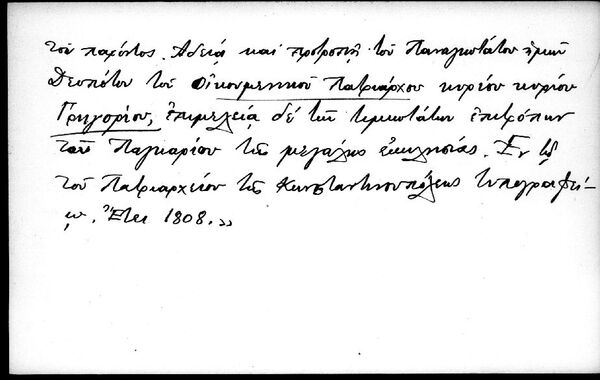 τοῦ παρόντος. Ἀδείᾳ καὶ προτροπῇ τοῦ Παναγιωτάτου ἡμῶν
Δεσπότου τοῦ Οἰκουμενικοῦ Πατριάρχου κυρίου κυρίου
Γρηγορίου, ἐπιμελείᾳ δέ τῶν τιμιωτάτων ἐπιτρόπων
τοῦ Παγκαρίου τῆς μεγάλης ἐκκλησίας. Ἐν τῷ
τοῦ Πατριαρχείου τῆς Κωνσταντινουπόλεως τυπογραφεί-
ῳ. Ἔτει 1808.»